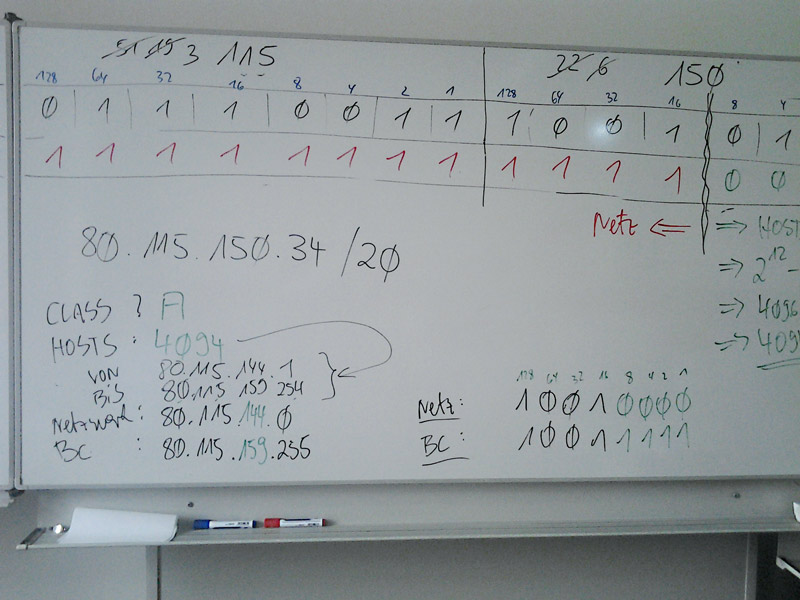 51 19 3 115 32 6 150
128 64 32 16 8 4 2 1 128 64 32 16 8 4
0 1 1 1 0 0 1 1 1 0 0 1 0 1
1 1 1 1 1 1 1 1 1 1 1 1 0 0
Netz ⇐ ⇒ HOST
80.115.150.34 /20
⇒ 2^12 -
CLASS ? A
⇒ 4096
HOSTS : 4094
⇒ 409
VON 80.115.144.1
BIS 80.115 159 254
128 64 32 16 8 4 2 1
Netzwerk: 80.115.144.0
Netz: 1 0 0 1 0 0 0 0
BC : 80.115.159.255
BC : 1 0 0 1 1 1 1 1